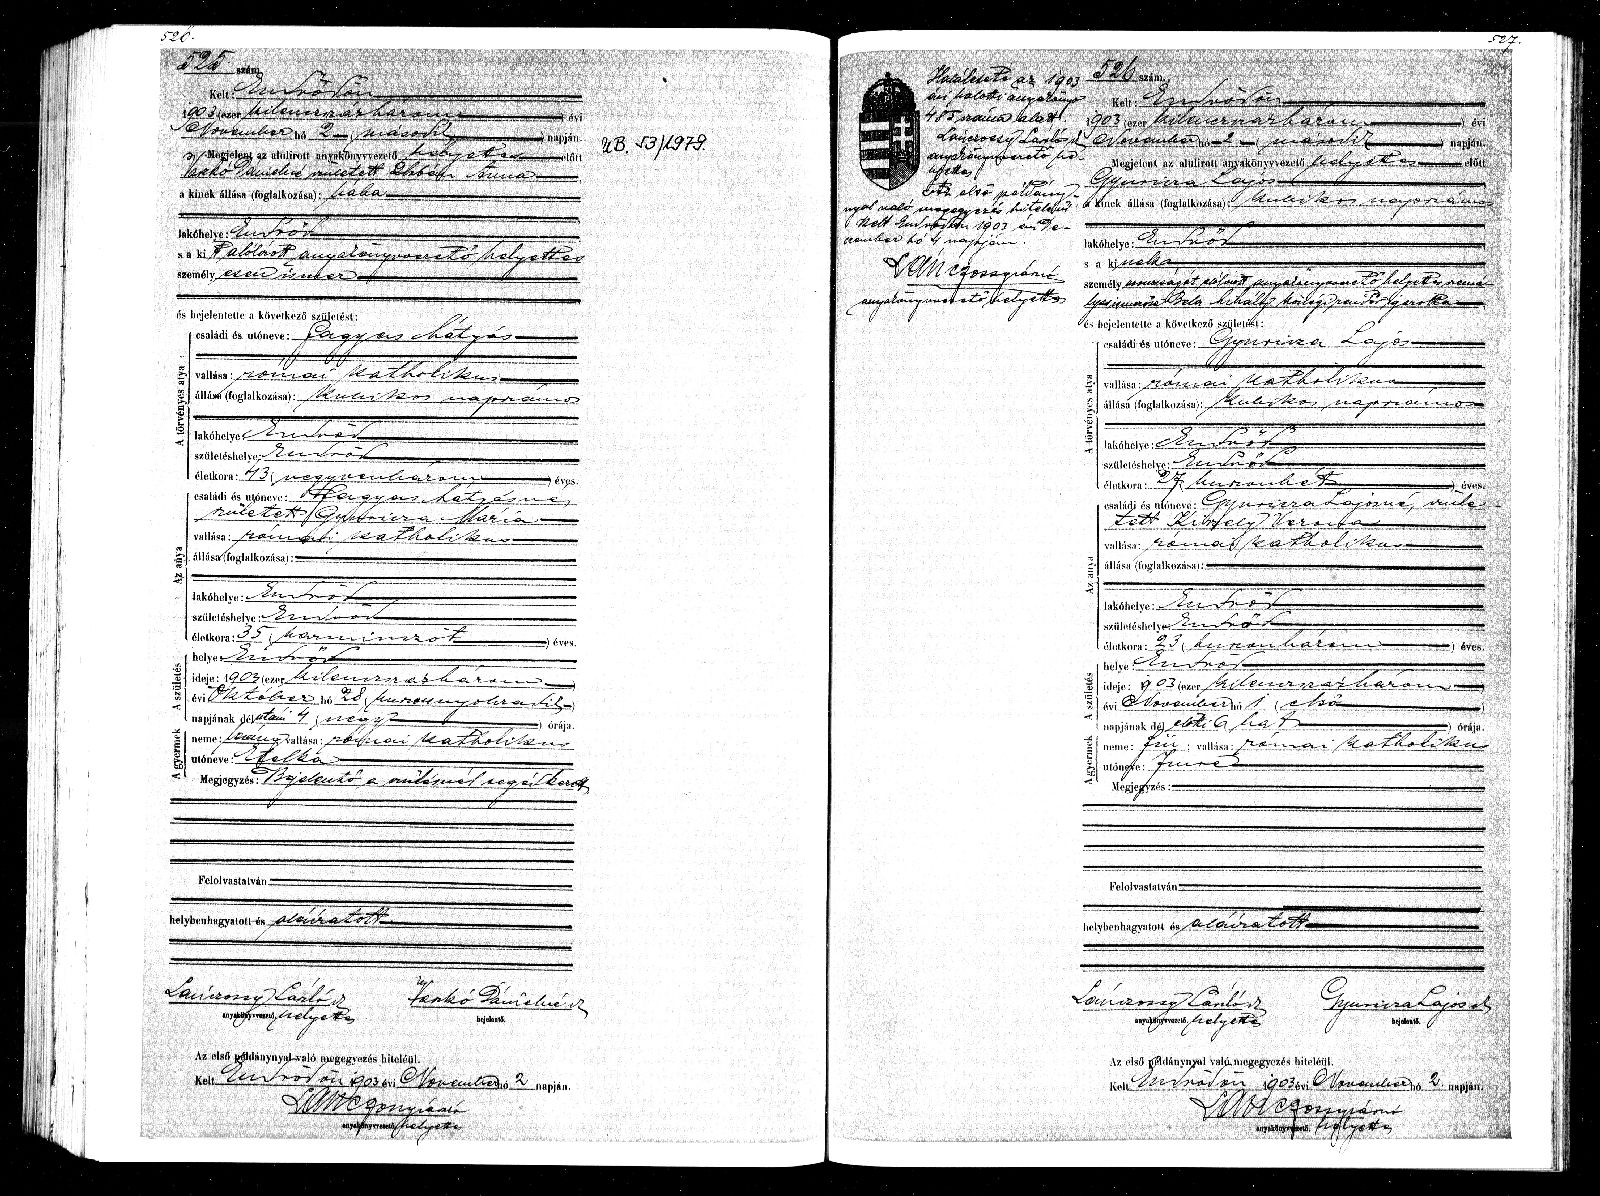 526.
525 szám.
Kelt: Endrődön
1903 (ezer kilenczszázhárom) évi
November hó 2 (második) napján.
Megjelent az alulirott anyakönyvvezető helyettes előtt
Varkó Dánielné született Anna
a kinek állása (foglalkozása): bába
lakóhelye: Endrőd
s a ki t alólirott anyakönyvvezető helyettes
személyesen ismer
és bejelentette a következő születést:
A törvényes atya
családi és utóneve: Hagyas Mátyás
vallása: római katholikus
állása (foglalkozása): kubikos napszámos
lakóhelye: Endrőd
születéshelye: Endrőd
életkora: 43 (negyvenhárom) éves.
Az anya
családi és utóneve: Hagyas Mátyásné,
született Gyuricza Mária
vallása: római katholikus
állása (foglalkozása):
lakóhelye: Endrőd
születéshelye: Endrőd
életkora: 35 (harminczöt) éves.
A születés
helye: Endrőd
ideje: 1903 (ezer kilenczszázhárom)
évi Október hó 28 (huszonnyolczadik)
napjának délutáni 4 (négy) órája.
A gyermek
neme: leány vallása: római katholikus
utóneve: Etelka
Megjegyzés: Bejelentő a szülésnél segédkezett
Felolvastatván
helybenhagyatott és aláiratott
Lánczossy László Varkó Dánielné
anyakönyvvezető helyettes bejelentő.
Az első példánynyal való megegyezés hiteléül.
Kelt Endrődön 1903 évi November hó 2 napján.
anyakönyvvezető helyettes
UB. 53/1979.
527.
Hatálest az 1903
évi halotti anyakönyv
485 szám alatt.
Lánczossy László
anyakönyvvezető he-
lyettes
Az első példány-
nyal való megegyezés hiteléül
Kelt Endrődön 1903 évi De-
czember hó 4 napján.
anyakönyvvezető helyettes
526 szám.
Kelt: Endrődön
1903 (ezer kilenczszázhárom) évi
November hó 2 (második) napján.
Megjelent az alulirott anyakönyvvezető helyettes előtt
Gyuricza Lajos
a kinek állása (foglalkozása): kubikos napszámos
lakóhelye: Endrőd
s a ki nek a
személyazonosságát anyakönyvvezető helyettes
Mihály
és bejelentette a következő születést:
A törvényes atya
családi és utóneve: Gyuricza Lajos
vallása: római katholikus
állása (foglalkozása): kubikos napszámos
lakóhelye: Endrőd
születéshelye: Endrőd
életkora: 27 (huszonhét) éves.
Az anya
családi és utóneve: Gyuricza Lajosné, szüle-
tett Veronka
vallása: római katholikus
állása (foglalkozása):
lakóhelye: Endrőd
születéshelye: Endrőd
életkora: 23 (huszonhárom) éves.
A születés
helye: Endrőd
ideje: 1903 (ezer kilenczszázhárom)
évi November hó 1 (első)
napjának délelőtti 6 (hat) órája.
A gyermek
neme: fiú; vallása: római katholikus
utóneve: Imre
Megjegyzés:
Felolvastatván
helybenhagyatott és aláiratott
Lánczossy László Gyuricza Lajos
anyakönyvvezető helyettes bejelentő.
Az első példánynyal való megegyezés hiteléül.
Kelt Endrődön 1903 évi November hó 2 napján.
anyakönyvvezető helyettes